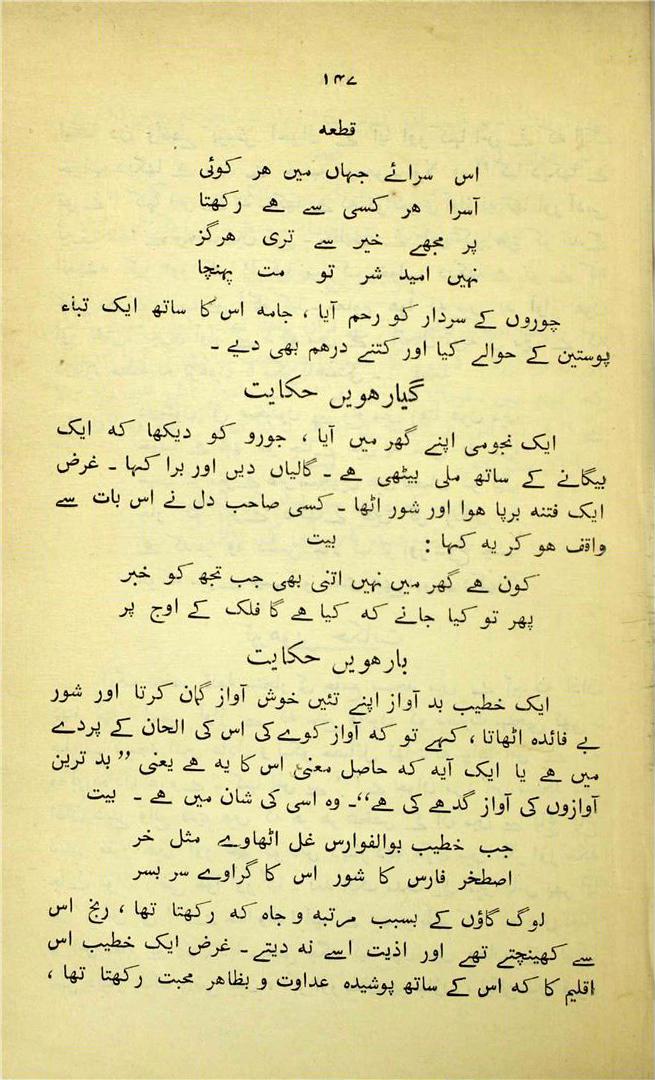 ۱۴۷
قطعہ
اس سرائے جہاں میں ھر کوئی
آسرا ھر کسی سے ھے رکھتا
پر مجھے خیر سے تری ھرگز
نہیں امید شر تو مت پہنچا
چوروں کے سردار کو رحم آیا ، جامہ اس کا ساتھ ایک تباء
پوستین کے حوالے کیا اور کتنے درھم بھی دیے ۔
گیارھویں حکایت
ایک نجومی اپنے گھر میں آیا ، جورو کو دیکھا کہ ایک
بیگانے کے ساتھ ملی بیٹھی ھے ۔ گالیاں دیں اور برا کہا ۔ غرض
ایک فتنہ برپا ھوا اور شور اٹھا ۔ کسی صاحب دل نے اس بات سے
واقف ھو کر یہ کہا : بیت
کون ھے گھر میں نہیں اتنی بھی جب تجھ کو خبر
پھر تو کیا جانے کہ کیا ھے گا فلک کے اوج پر
بارھویں حکایت
ایک خطیب بد آواز اپنے تئیں خوش آواز گمان کرتا اور شور
بے فائدہ اٹھاتا ، کہے تو کہ آواز کوے کی اس کی الحان کے پردے
میں ھے یا ایک آیہ کہ حاصل معنیٰ اس کا یہ ھے یعنی ”بد ترین
آوازوں کی آواز گدھے کی ھے“۔ وہ اسی کی شان میں ھے ۔ بیت
جب خطیب بوالفوارس غل اٹھاوے مثل خر
اصطخر فارس کا شور اس کا گراوے سر بسر
لوگ گاؤں کے بسبب مرتبہ و جاہ کہ رکھتا تھا ، رنج اس
سے کھینچتے تھے اور اذیت اسے نہ دیتے ۔ غرض ایک خطیب اس
اقلیم کا کہ اس کے ساتھ پوشیدہ عداوت و بظاھر محبت رکھتا تھا ،